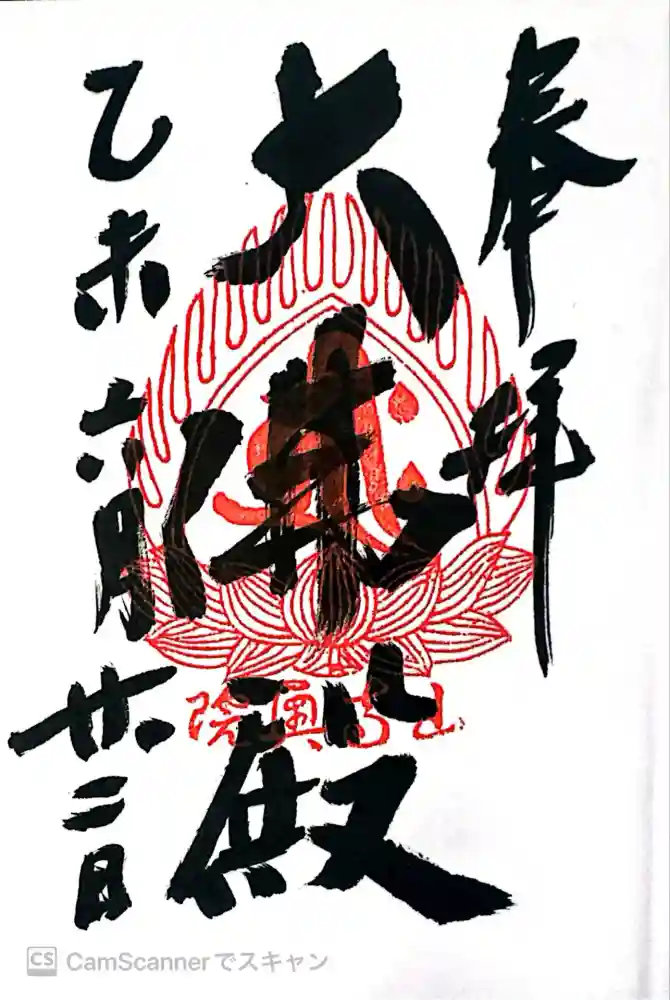 奉拝
大佛殿
乙未六月廿二日
CS CamScannerでスキャン